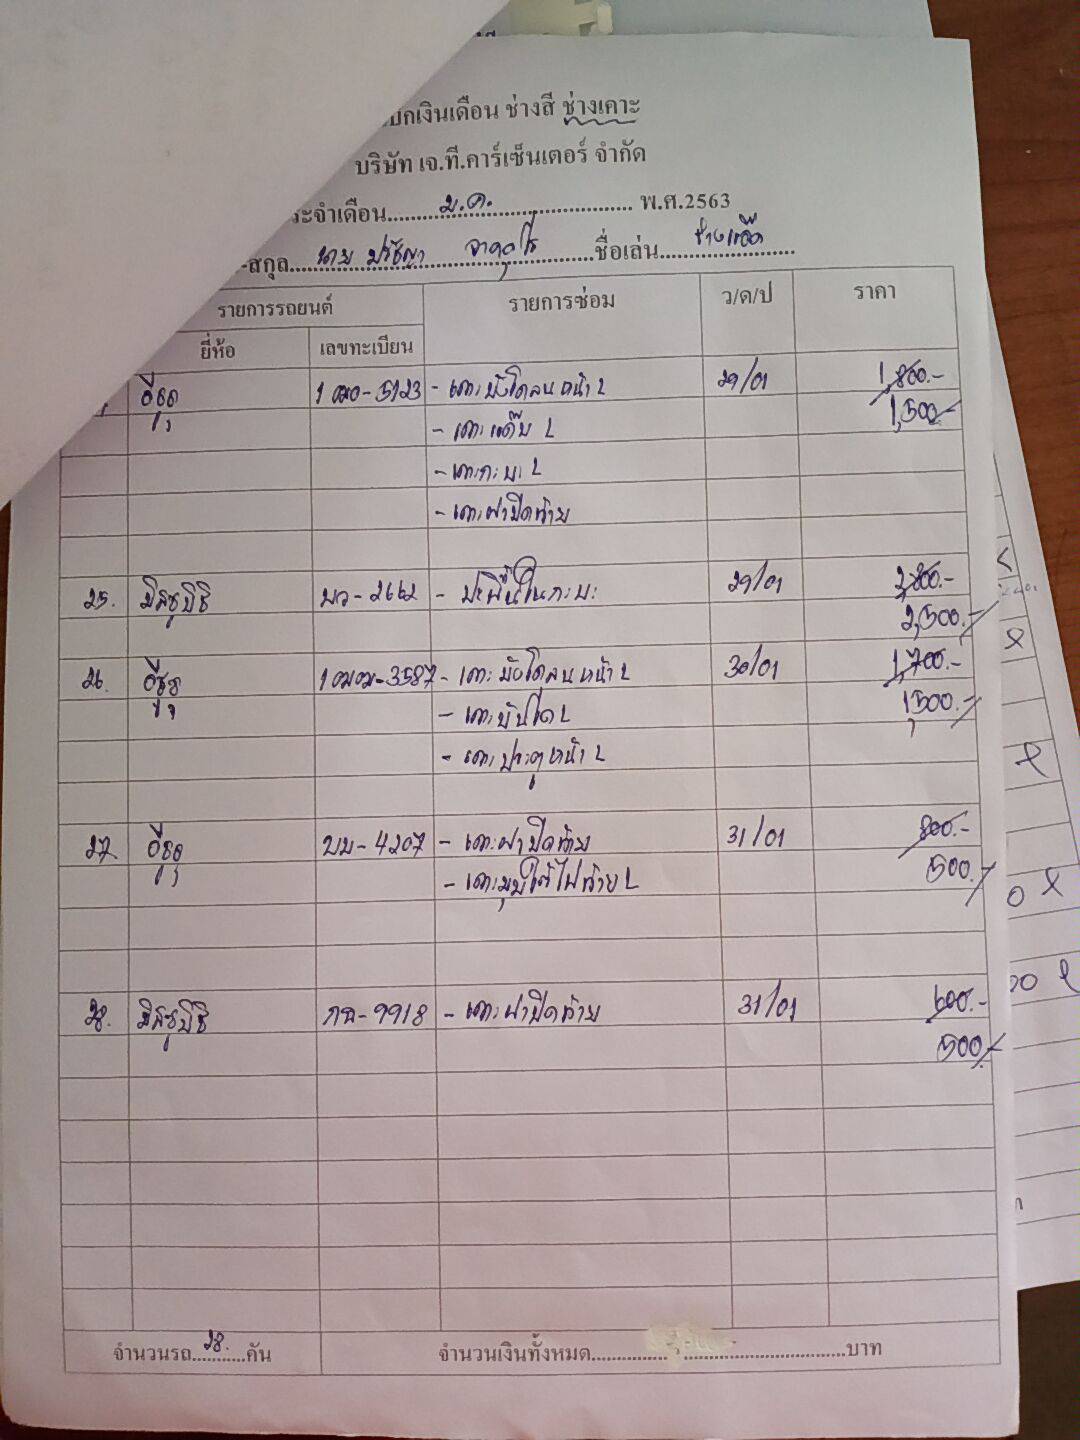 เบิกเงินเดือน ช่างสี ช่างเคาะ
บริษัท เจ.ที.คาร์เซ็นเตอร์ จำกัด
ระจำเดือน ม.ค. พ.ศ.2563
-สกุล นาย ปรัชญา ชื่อเล่น
รายการรถยนต์ รายการซ่อม ว/ด/ป ราคา
ยี่ห้อ เลขทะเบียน
อีซูซุ - เคาะบังโคลนหน้า L 29/01 1,800.-
- เคาะแค๊บ L 1,500.-
- เคาะกะบะ L
- เคาะฝาปิดท้าย
25. มิตซูบิชิ บว-2662 - ปะพื้นในกะบะ 29/01 2,800.-
2,500.-
26. อีซูซุ 1ฒฒ-3587 - เคาะบังโคลนหน้า L 30/01 1,700.-
- เคาะบันได L 1,500.-
- เคาะประตูหน้า L
27. อีซูซุ บบ-4207 - เคาะฝาปิดท้าย 31/01 800.-
- เคาะมุมใต้ไฟท้าย L 500.-
28. มิตซูบิชิ กฉ-9918 - เคาะฝาปิดท้าย 31/01 600.-
500.-
จำนวนรถ 28. คัน จำนวนเงินทั้งหมด บาท